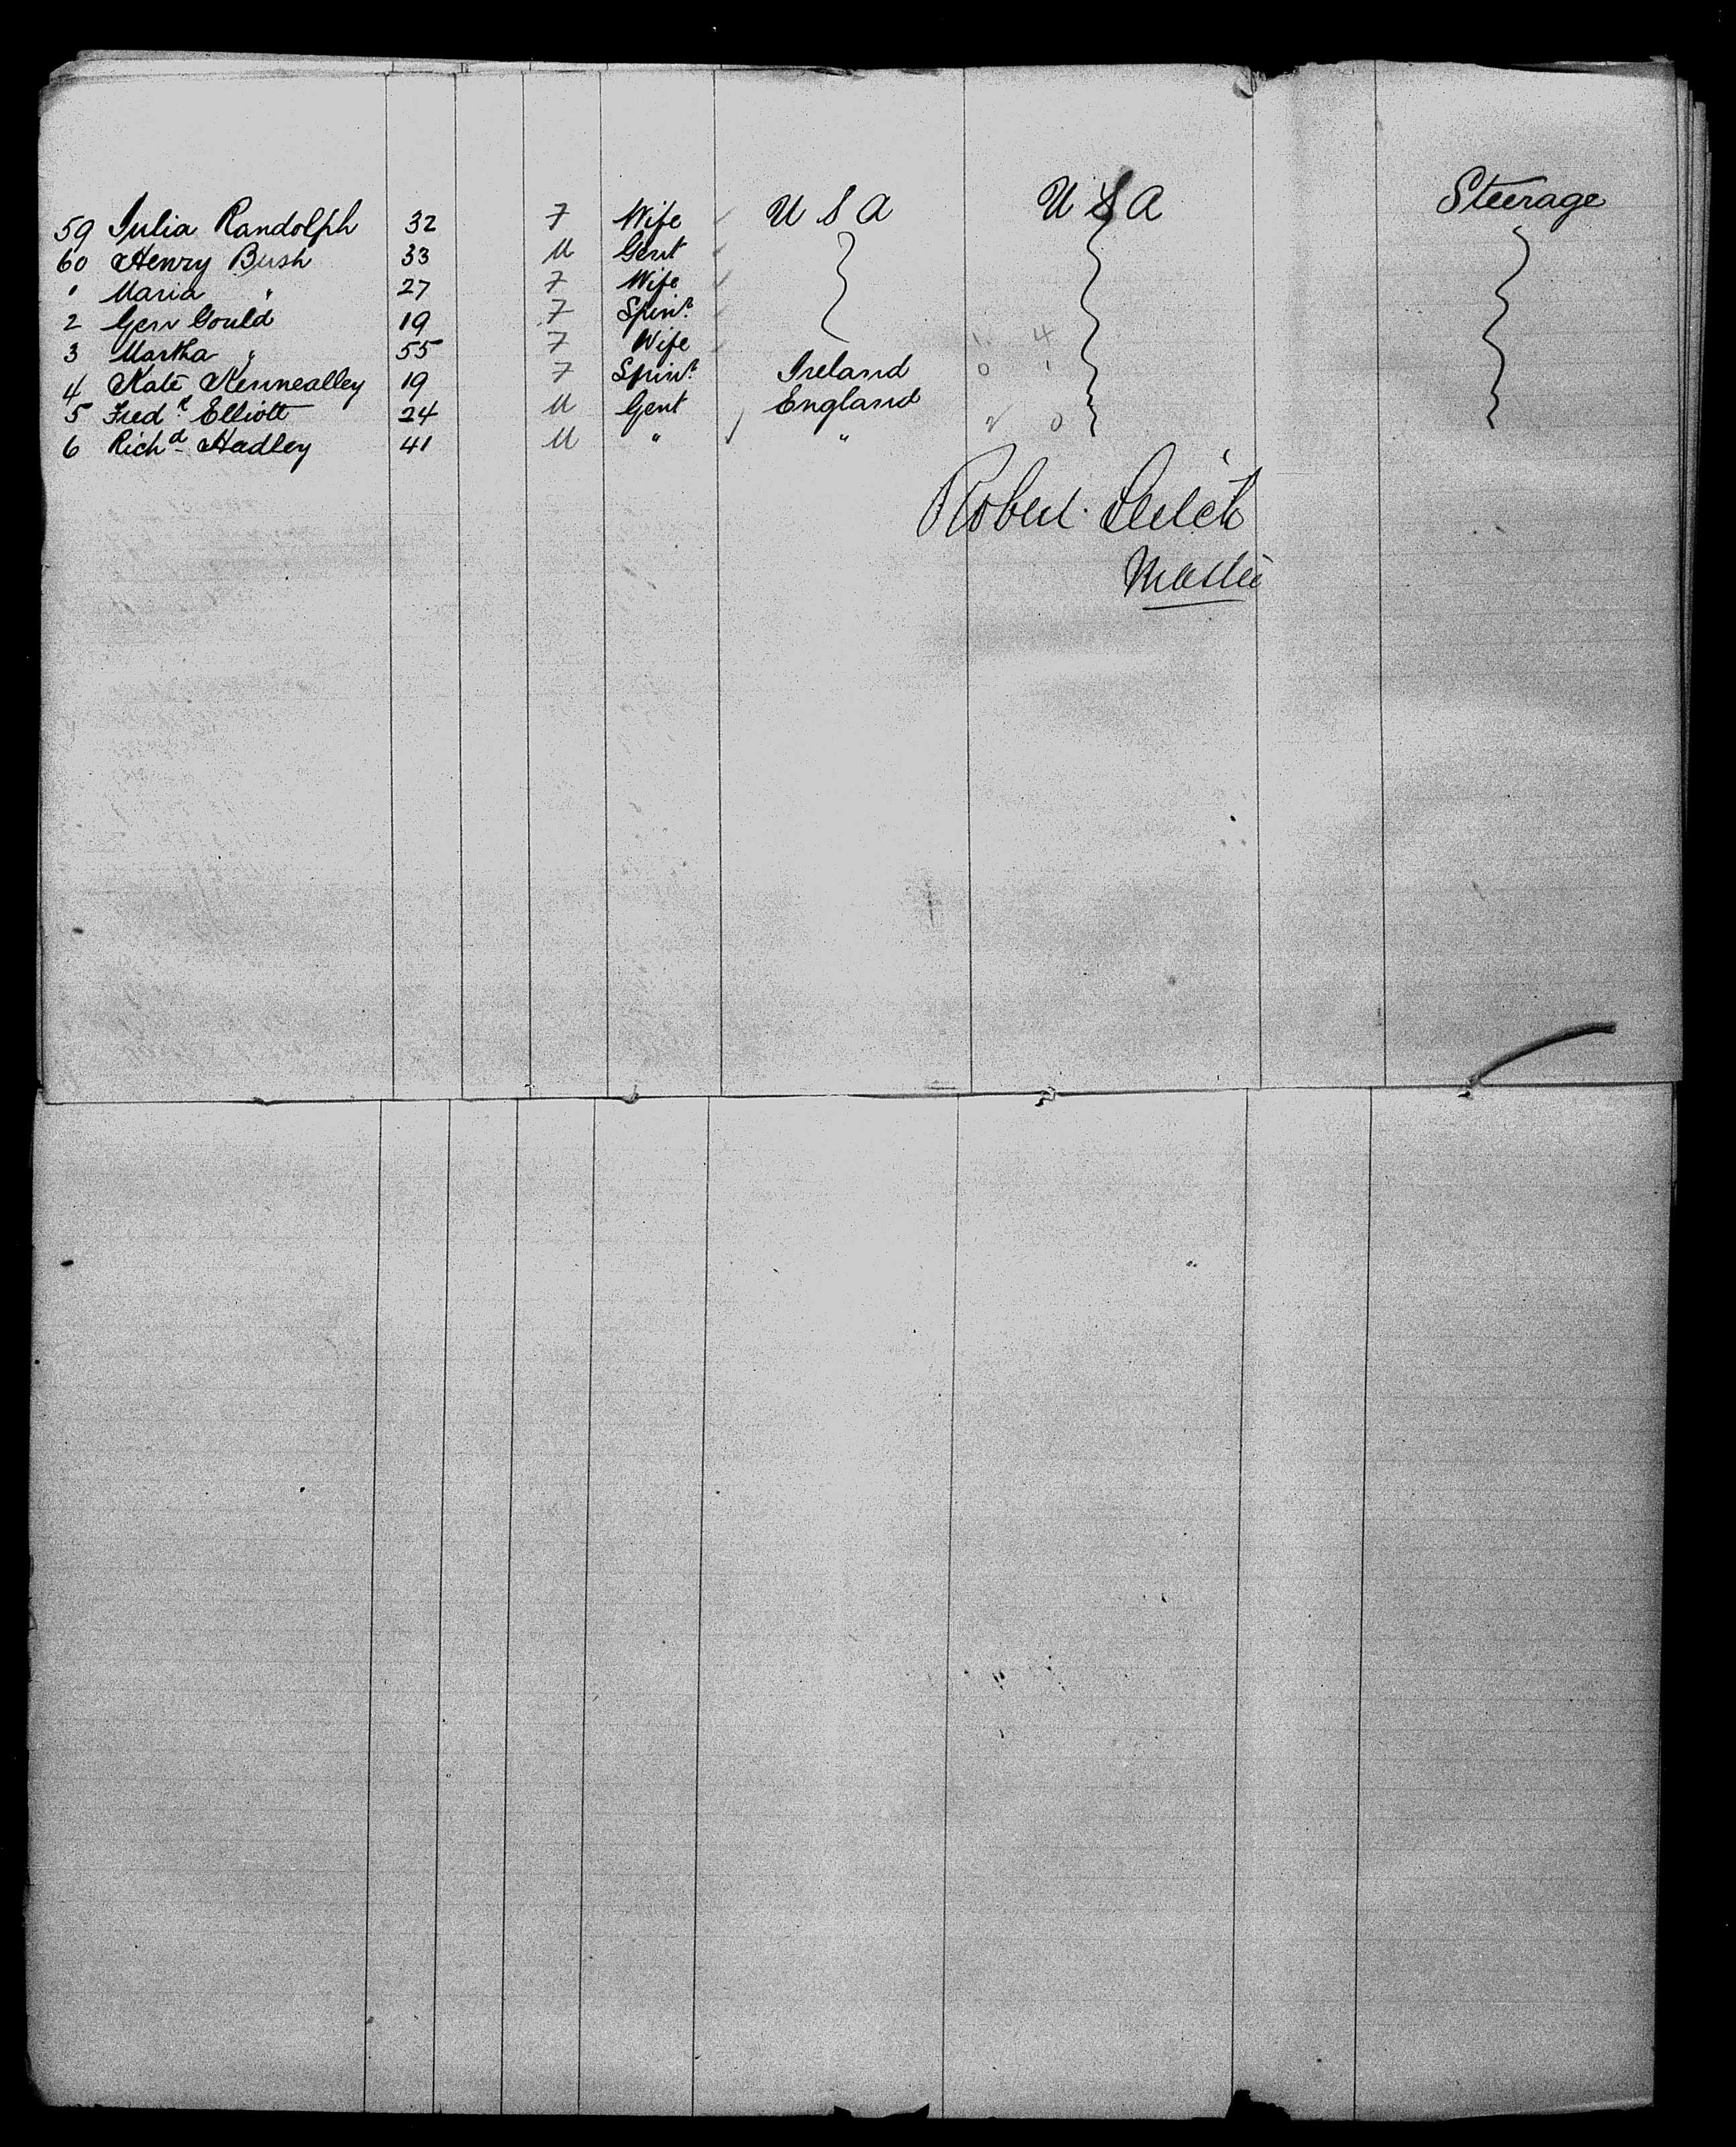 59 Julia Randolph 32 F Wife U S A U S A Steerage
60 Henry Bush 33 M Gent
1 Maria " 27 F Wife
2 Gould 19 F Spinr
3 Martha " 55 F Wife
4 Kate Kennealley 19 F Spinr Ireland
5 Fredk Elliott 24 M Gent England
6 Richd Hadley 41 M " "
Robert Leitch
Master